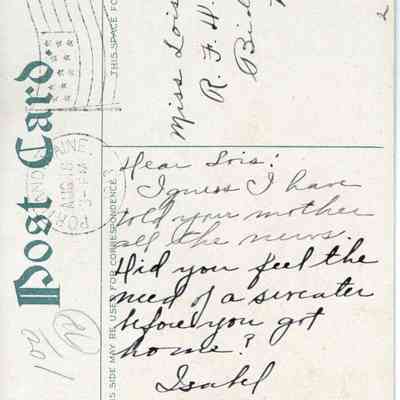 Post Card.
THIS SPACE FO
THIS SIDE MAY BE USED FOR CORRESPONDENCE
PORTLAND
AUG
PM
Miss Lois
R. F. D.
Bid
2
Dear Lois:
I guess I have
told your mother
all the news.
Did you feel the
need of a sweater
before you got
home?
Isabel